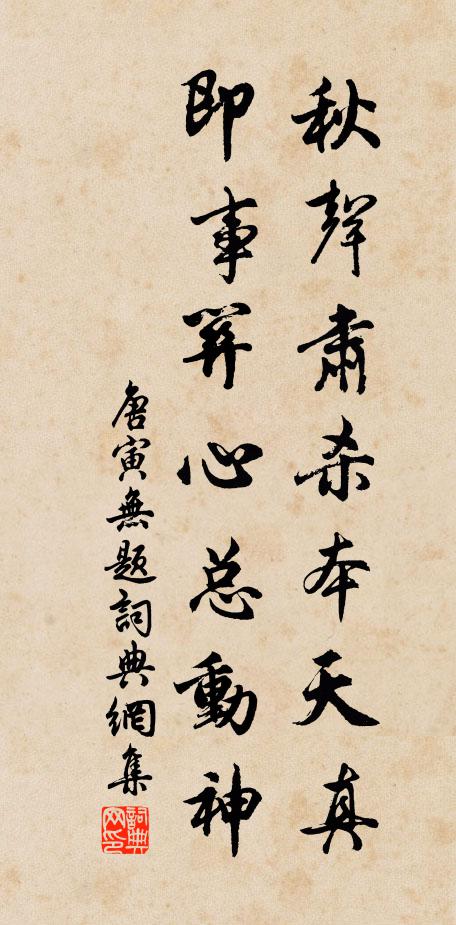 秋聲肅杀本天真
即事關心总動神
唐寅無題詞典網集
詞典网印